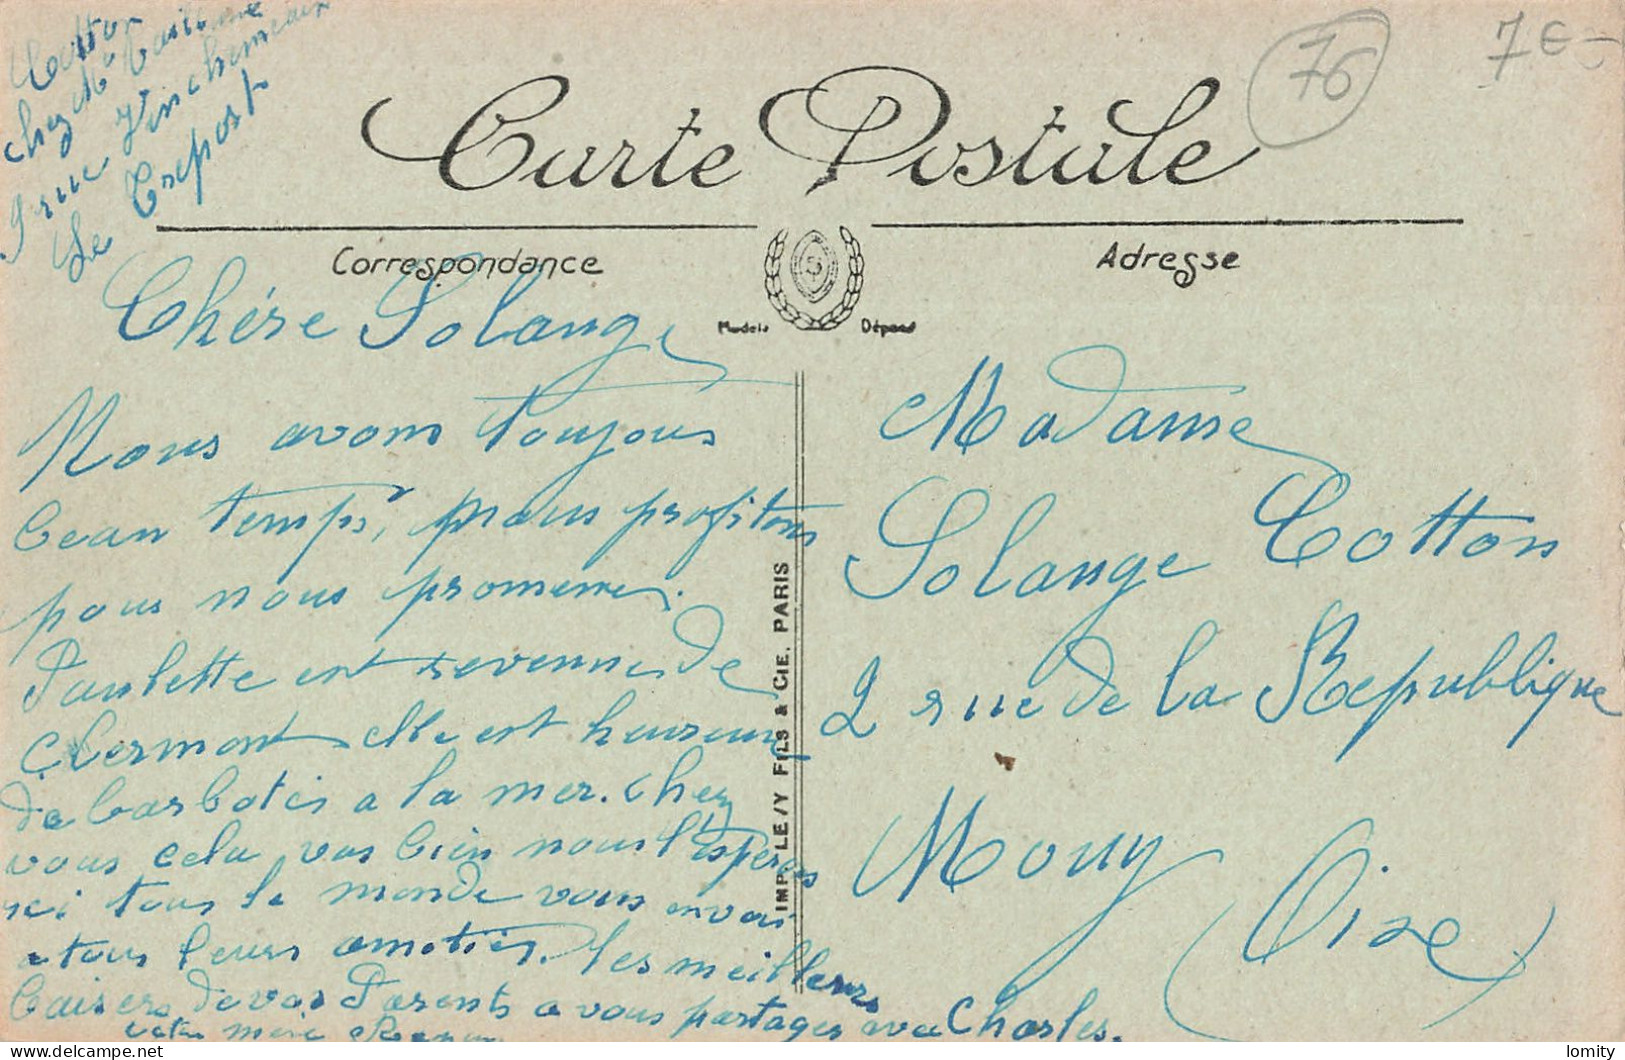 Cotton
chez Mr
9 rue Vincheneaux
Le Treport
76
7€-
Carte Postale
Correspondance
Adresse
Modèle Déposé
Chére Solange
Nous avons toujous
beau temps, nous profitons
pous nous promener.
Paulette est revenue de
Clermont elle est heureuse
de barboter a la mer. Chez
vous cela vas bien nous l'esperons
ici tous le monde vous envoi
a tous leurs amitiés. les meilleurs
baisers de vos Parents a vous partager avec Charles.
votre mere
IMP. LEVY FILS & CIE. PARIS
Madame
Solange Cotton
2 rue de la Republique
Mouy
(Oise)
lomity
delcampe.net